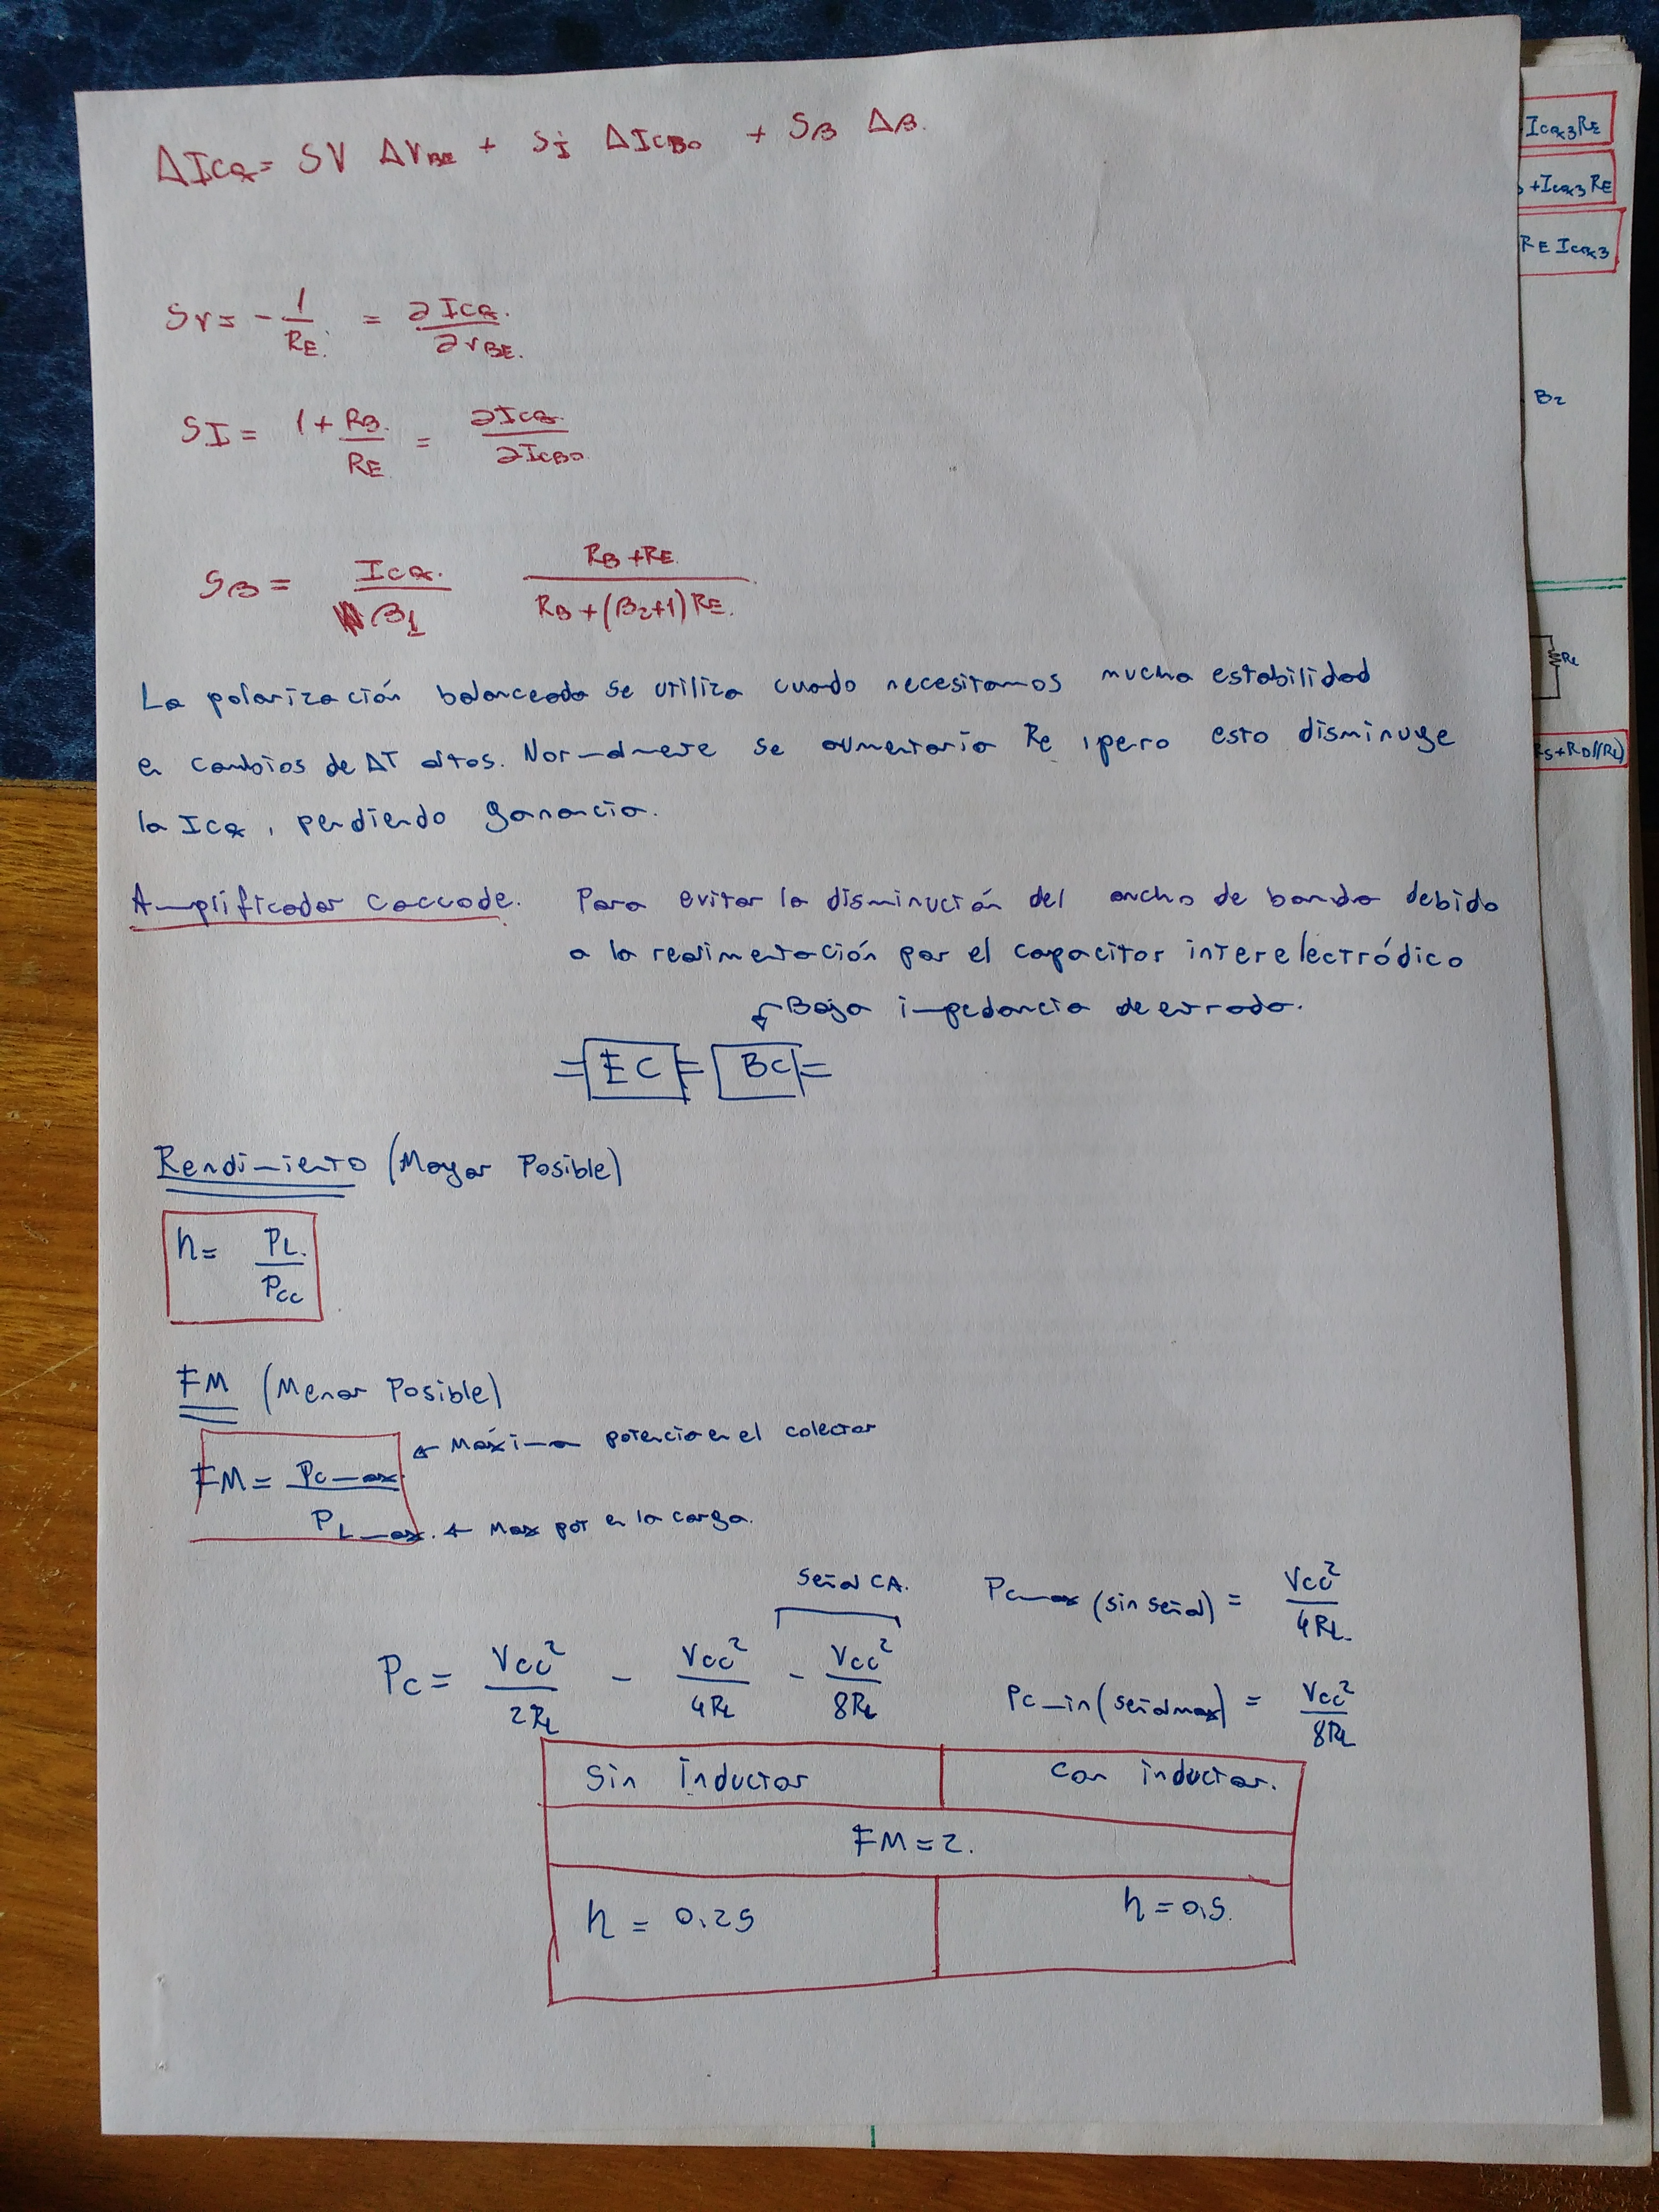 ΔICQ = SV ΔVBE + SI ΔICBO + Sβ Δβ.
SV = - 1/RE. = ∂ICQ./∂VBE.
SI = 1 + RB./RE = ∂ICQ./∂ICBO
Sβ = ICQ./β1 (RB + RE)/(RB + (β2+1) RE.)
La polarización balanceada se utiliza cuando necesitamos mucha estabilidad
en cambios de ΔT altos. Normalmente se aumentaría Re, pero esto disminuye
la ICQ, perdiendo ganancia.
Amplificador Caccode. Para evitar la disminución del ancho de banda debido
a la realimentación por el capacitor interelectródico
Baja impedancia de entrada.
EC BC
Rendimiento (Mayor Posible)
η = PL./PCC
FM (Menor Posible)
FM = Pcmax/PLmax.
← Máxima potencia en el colector
← Max pot en la carga.
Señal CA.
Pcmax (sin señal) = VCC²/4RL
PC = VCC²/2RL - VCC²/4RL - VCC²/8RL
Pcmin (señal max) = VCC²/8RL
Sin Inductor Con inductor.
FM = 2.
η = 0,25 η = 0,5.
ICQ3 RE
+ICQ3 RE
RE ICQ3
B2
RL
RS+RD//RL)